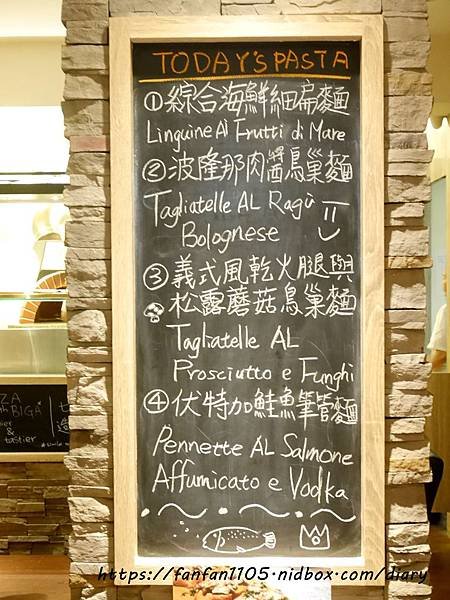 TODAY'S PASTA
①綜合海鮮細扁麵
Linguine Al Frutti di Mare
②波隆那肉醬鳥巢麵
Tagliatelle AL Ragù
Bolognese
③義式風乾火腿與
松露蘑菇鳥巢麵
Tagliatelle AL
Prosciutto e Funghi
④伏特加鮭魚筆管麵
Pennette AL Salmone
Affumicato e Vodka
BIGA
tastier
https://fanfan1105.nidbox.com/diary